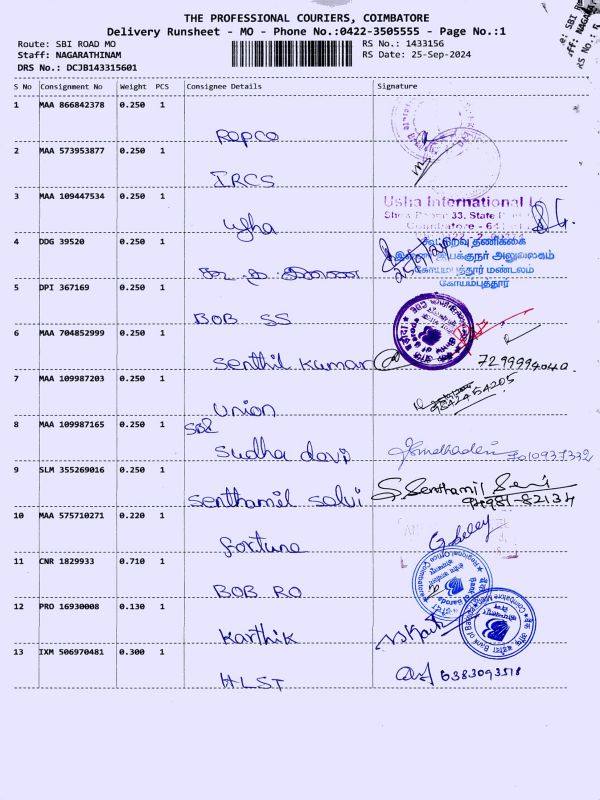 THE PROFESSIONAL COURIERS, COIMBATORE
Delivery Runsheet - MO - Phone No.:0422-3505555 - Page No.:1
Route: SBI ROAD MO
RS No.: 1433156
Staff: NAGARATHINAM
RS Date: 25-Sep-2024
DRS No.: DCJB143315601
S No Consignment No Weight PCS Consignee Details Signature
1 MAA 866842378 0.250 1
Repco
2 MAA 573953877 0.250 1
IRCS
3 MAA 109447534 0.250 1
Usha International
Usha
Coimbatore - 641
4 DDG 39520 0.250 1
கூட்டுறவு தணிக்கை
இணை இயக்குநர் அலுவலகம்
கோயம்புத்தூர் மண்டலம்
கோயம்புத்தூர்
5 DPI 367169 0.250 1
BOB SS
6 MAA 704852999 0.250 1
Senthil Kumar
7299994040
7 MAA 109987203 0.250 1
9842454205
Union
8 MAA 109987165 0.250 1
SBI
Sudha davi
7010937332
9 SLM 355269016 0.250 1
S. Senthamil Selvi
Senthamil Salvi
10 MAA 575710271 0.220 1
fortune
11 CNR 1829933 0.710 1
Regional Office Coimbatore
Bank of Baroda
BOB RO
12 PRO 16930008 0.130 1
Karthik
13 IXM 506970481 0.300 1
6383093518
HLST